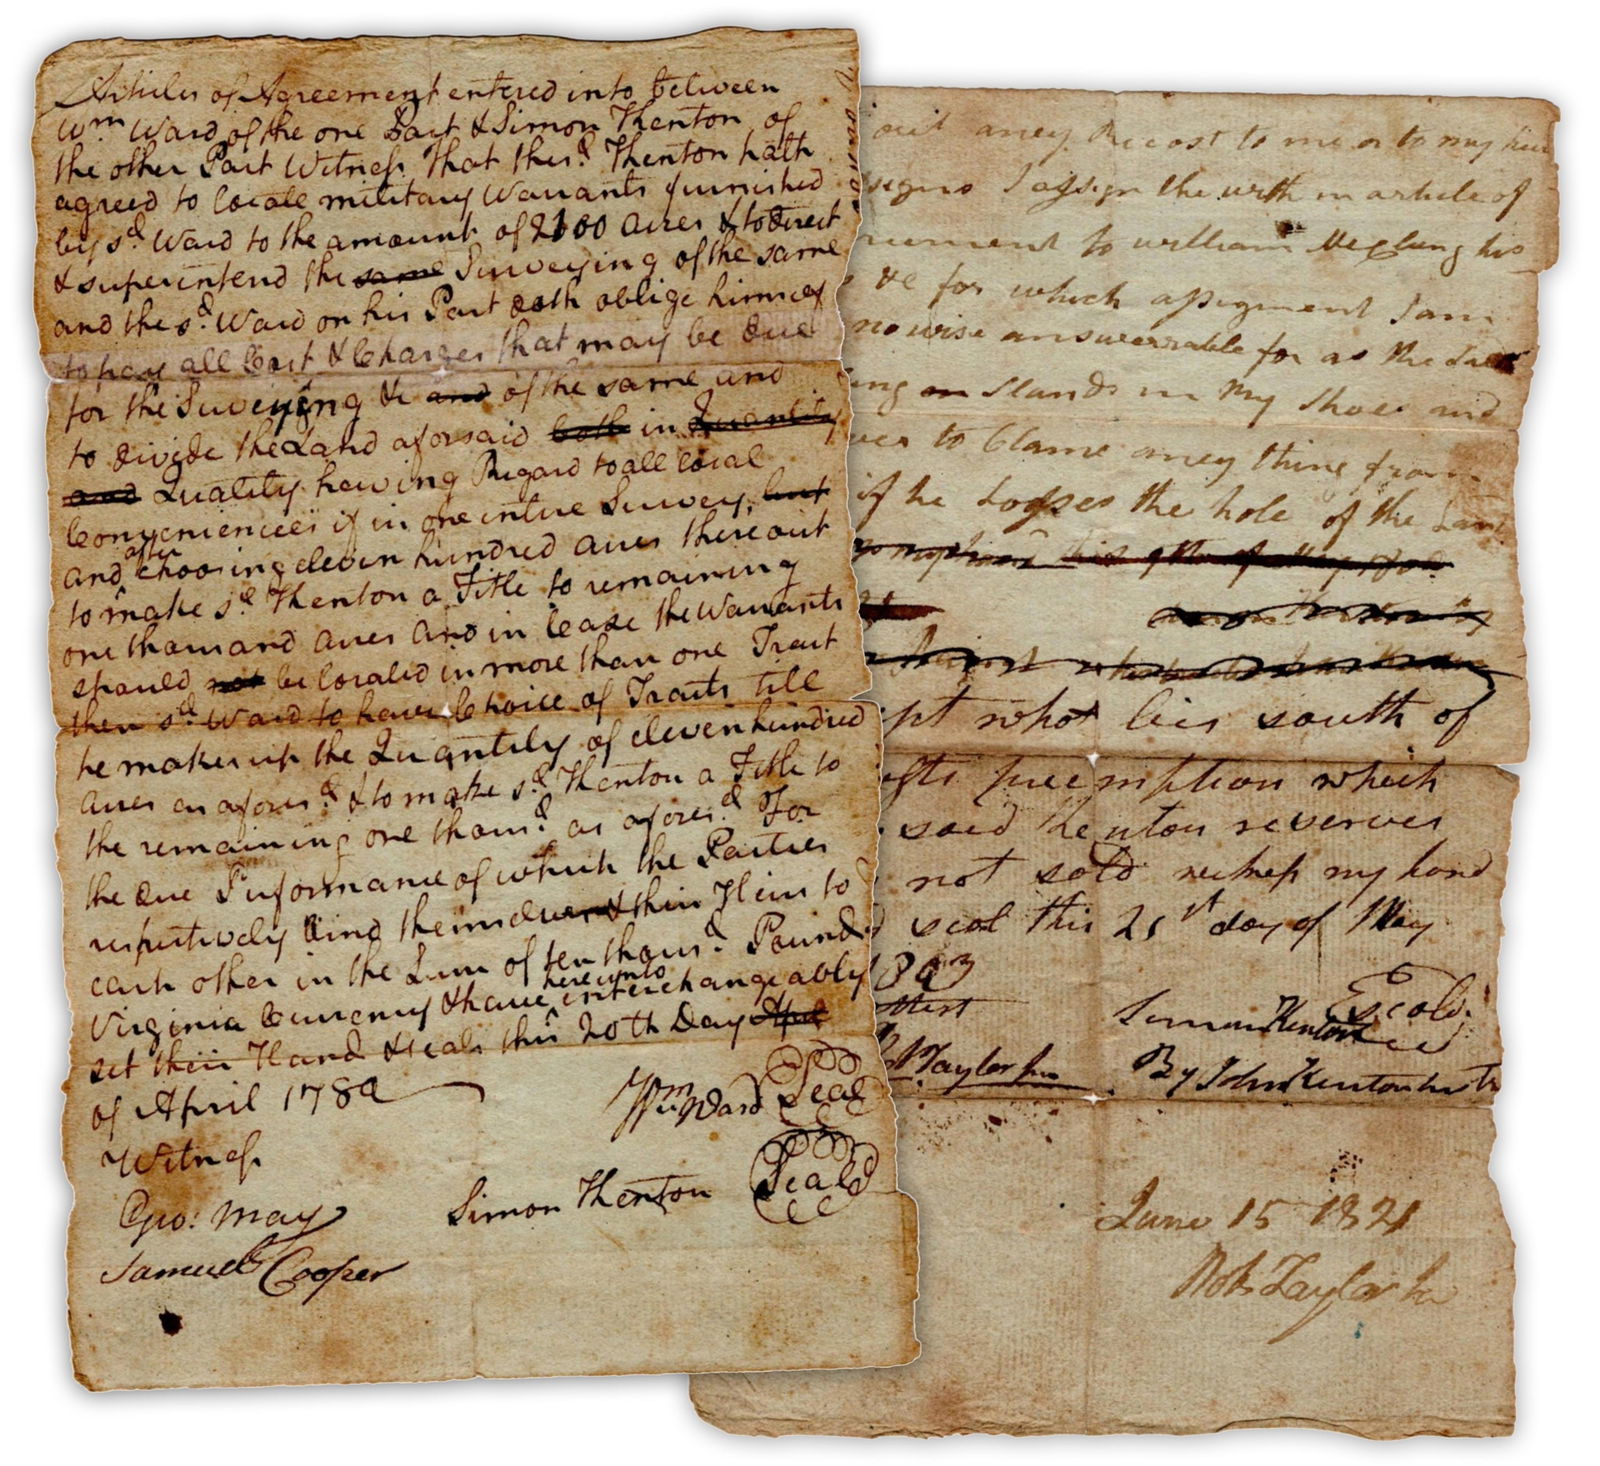 Articles of Agreement entered into between
Wm Ward of the one Part & Simon Kenton of
the other Part Witness that the sd. Kenton hath
agreed to locate military Warrants furnished
by sd. Ward to the amount of 2100 acres & to direct
& superintend the same Surveying of the same
and the sd. Ward on his Part doth oblige himself
to pay all Cost & Charges that may be due
for the Surveying &c and of the same and
to divide the Land aforsaid both in Quantity
and Quality having Regard to all local
Conveniencies if in one intire Survey, but
and after choosing eleven hundred acres thereout
to make sd. Kenton a Title to remaining
one thousand acres and in Case the Warrants
should not be located in more than one Tract
then sd. Ward to have Choice of Tracts till
he makes up the Quantity of eleven hundred
acres as afores.d & to make sd. Kenton a Title to
the remaining one thous.d as afores.d For
the due Performance of which the Parties
respectively bind themselves & their Heirs to
each other in the Sum of ten thous.d Pounds
Virginia Currency & have hereunto interchangeably
set their Hands & seals this 20th Day Apl
of April 178
Witness
Wm Ward Seal
Geo: May
Simon Kenton Seal
Samuel Cooper
out aney Recost to me or to my heir
I assign the with in article of
to william his
&c for which assigment I am
no wise answerrable for as the said
on Stands in My Shoes and
to blame aney thing from
if he Losses the hole of the Land
what lies south of
preemption which
said Kenton reserves
not sold witness my hand
seal this 21st day of May
1803
Attest
Simon Kenton Seal
Taylor Jur
By John Kenton his
June 15 1821
Rob Taylor Jur